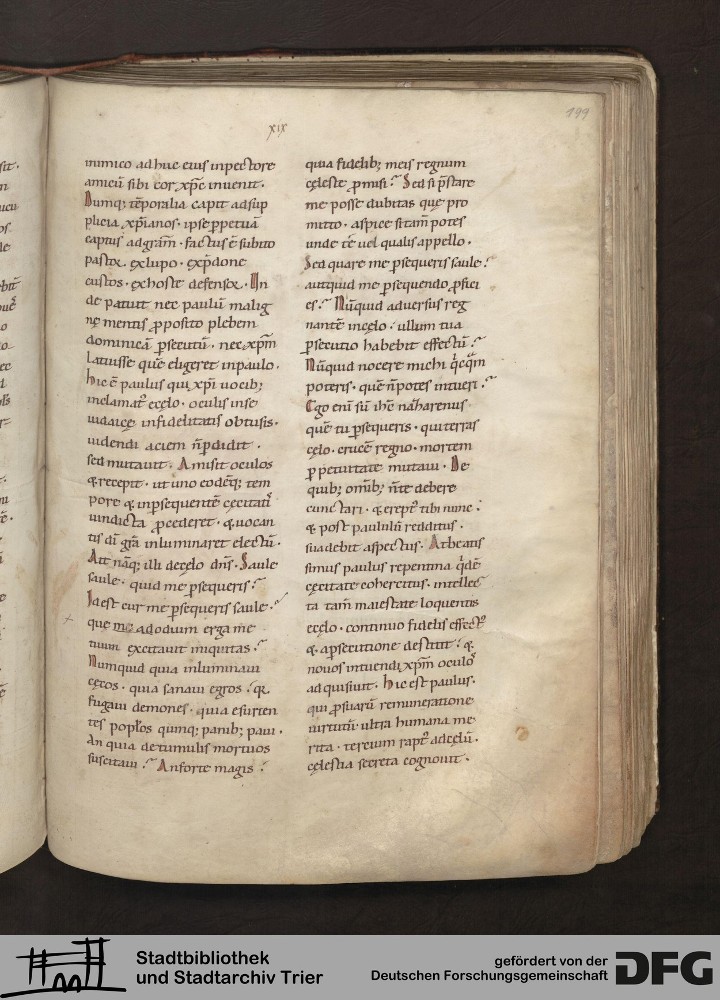 199
xix
inimico adhuc eius inpectore
amicū sibi cor xp̄c inuenit.
Dumq; tēporalia capit adsup
plicia xp̄ianos. ipse ppetua
captus adgram̄. factus ē subito
pastor. exlupo. exp̄done
custos. exhoste defensor. Un
de patuit nec paulū malig
nę mentis pposito plebem
dominicā psecutū. nec xpm̄
latuisse quē eligeret inpaulo.
hic ē paulus qui xpi uocib;
inclamat' ecęlo. oculis inse
iudaicę infidelitatis obtusis.
uidendi aciem n̄ pdidit.
sed mutauit. Amisit oculos
& recepit. ut uno eodēq; tem
pore & inpsequentē cęcitatis
uindicta pcederet. & uocan
tis dī gr̄a inluminaret electū.
Ait nāq; illi decęlo dn̄s. Saule
saule. quid me psequeris?
Idest cur me psequeris saule?
que me adodium erga me
tuum excitauit iniquitas?
Numquid quia inluminaui
cęcos. quia sanaui egros? quia
fugaui demones. quia esurien
tes poplos quinq; panib; paui.
An quia detumulis mortuos
suscitaui? An forte magis?
quia fidelib; meis regnum
cęleste pmisi? Sed si p̄stare
me posse dubitas que pro
mitto. aspice sitam̄ potes
unde tē uel qualis appello.
Sed quare me psequeris saule?
autquid me psequendo pfici
es? Nūquid aduersus reg
nantē incęlo. ullum tua
psecutio habebit effectū?
Nūquid nocere michi qicqm
poteris. quē n̄ potes intueri?
Ego enī sū ih̄c naƶarenus
quē tu psequeris. qui terras
cęlo. crucē regno. mortem
ppetuitate mutaui. De
quib; omib; n̄ te debere
cunctari. & erept' tibi nunc.
& post paululū redditus.
suadebit aspectus. Atbeatis
simus paulus repentina qdē
cęcitate cohercitus. intellec
ta tam̄ maiestate loquentis
ecęlo. continuo fidelis effect'
& apsecutione destitit. &
nouos intuendi xpm̄ oculos
adquisiuit. hic est paulus.
qui psuarū remuneratione
uirtutū ultra humana me
rita. tercium rapt' adcęlū.
cęlestia secreta cognouit.
Stadtbibliothek
und Stadtarchiv Trier
gefördert von der
Deutschen Forschungsgemeinschaft
DFG